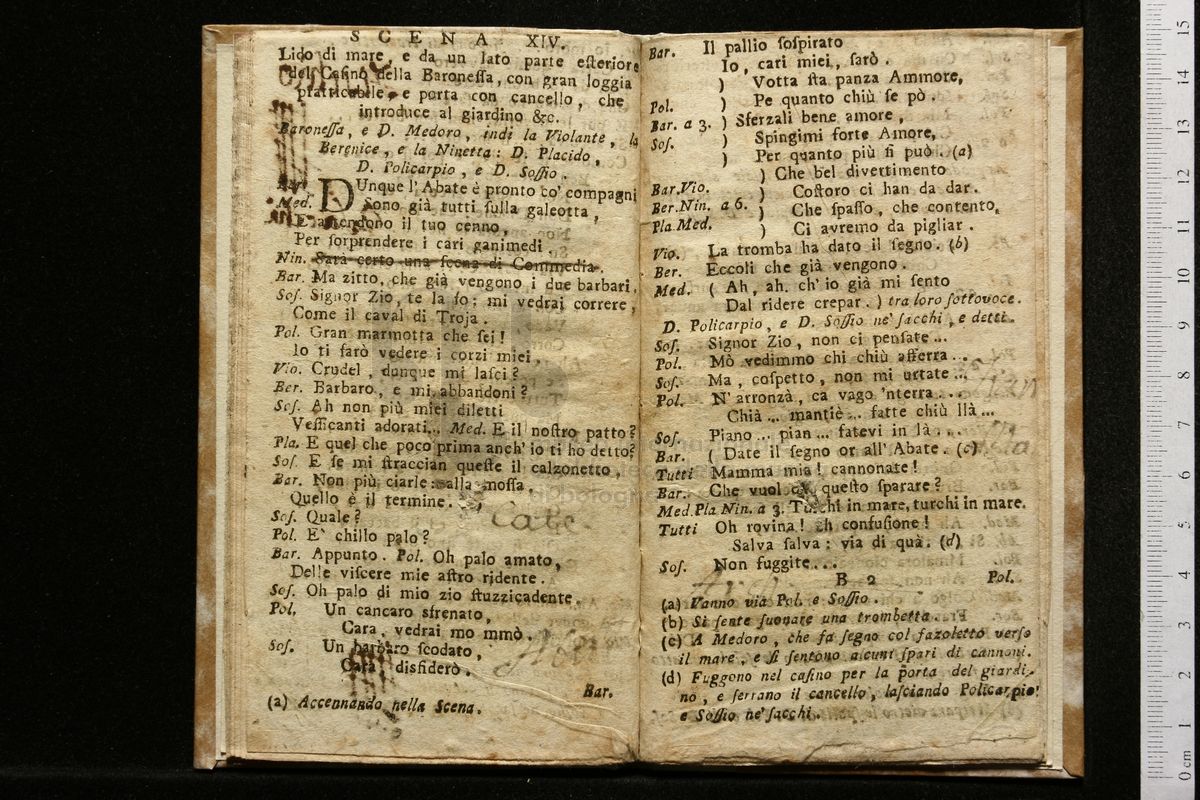 SCENA XIV.
Lido di mare, e da un lato parte eſteriore
del Caſino della Baroneſſa, con gran loggia
pratticabile, e porta con cancello, che
introduce al giardino &c.
Baroneſſa, e D. Medoro, indi la Violante, la
Berenice, e la Ninetta: D. Placido,
D. Policarpio, e D. Soſſio.
DUnque l'Abate è pronto co' compagni
Med. Sono già tutti ſulla galeotta,
E attendono il tuo cenno,
Per ſorprendere i cari ganimedi
Nin. Sarà certo una ſcena di Commedia.
Bar. Ma zitto, che già vengono i due barbari.
Soſ. Signor Zio, te la ſo; mi vedrai correre,
Come il caval di Troja.
Pol. Gran marmotta che ſei!
Io ti farò vedere i corzi miei.
Vio. Crudel, dunque mi laſci?
Ber. Barbaro, e mi abbandoni?
Soſ. Ah non più miei diletti
Veſſicanti adorati... Med. E il noſtro patto?
Pla. E quel che poco prima anch'io ti ho detto?
Soſ. E ſe mi ſtraccian queſte il calzonetto.
Bar. Non più ciarle: alla moſſa,
Quello è il termine.
Soſ. Quale?
Pol. E' chillo palo?
Bar. Appunto. Pol. Oh palo amato,
Delle viſcere mie aſtro ridente.
Soſ. Oh palo di mio zio ſtuzzicadente.
Pol. Un cancaro sfrenato,
Cara, vedrai mo mmò.
Soſ. Un barbaro ſcodato,
Cara disfiderò.
Bar.
(a) Accennando nella Scena.
Bar. Il pallio ſoſpirato
Io, cari miei, ſarò.
) Votta ſta panza Ammore,
Pol. ) Pe quanto chiù ſe pò.
Bar. a 3. ) Sferzali bene amore,
Soſ. ) Spingimi forte Amore,
) Per quanto più ſi può. (a)
) Che bel divertimento
Bar.Vio. ) Coſtoro ci han da dar.
Ber.Nin. a 6. ) Che ſpaſſo, che contento,
Pla.Med. ) Ci avremo da pigliar.
Vio. La tromba ha dato il ſegno. (b)
Ber. Eccoli che già vengono.
Med. ( Ah, ah. ch'io già mi ſento
Dal ridere crepar. ) tra loro ſottovoce.
D. Policarpio, e D. Soſſio ne' ſacchi, e detti.
Soſ. Signor Zio, non ci penſate...
Pol. Mò vedimmo chi chiù afferra...
Soſ. Ma, coſpetto, non mi urtate...
Pol. N'arronzà, ca vago 'nterra...
Chià... mantiè... fatte chiù llà...
Soſ. Piano... pian... fatevi in là...
Bar. ( Date il ſegno or all'Abate. (c)
Tutti Mamma mia! cannonate!
Bar. Che vuol queſto ſparare?
Med.Pla Nin. a 3. Turchi in mare, turchi in mare.
Tutti Oh rovina! eh confuſione!
Salva ſalva: via di quà. (d)
Soſ. Non fuggite...
B 2 Pol.
(a) Vanno via Pol. e Soſſio.
(b) Si ſente ſuonare una trombetta.
(c) A Medoro, che fa ſegno col fazoletto verſo
il mare, e ſi ſentono alcuni ſpari di cannoni.
(d) Fuggono nel caſino per la porta del giardi-
no, e ſerrano il cancello, laſciando Policarpio
e Soſſio ne' ſacchi.
15
14
13
12
11
10
9
8
7
6
5
4
3
2
1
0 cm